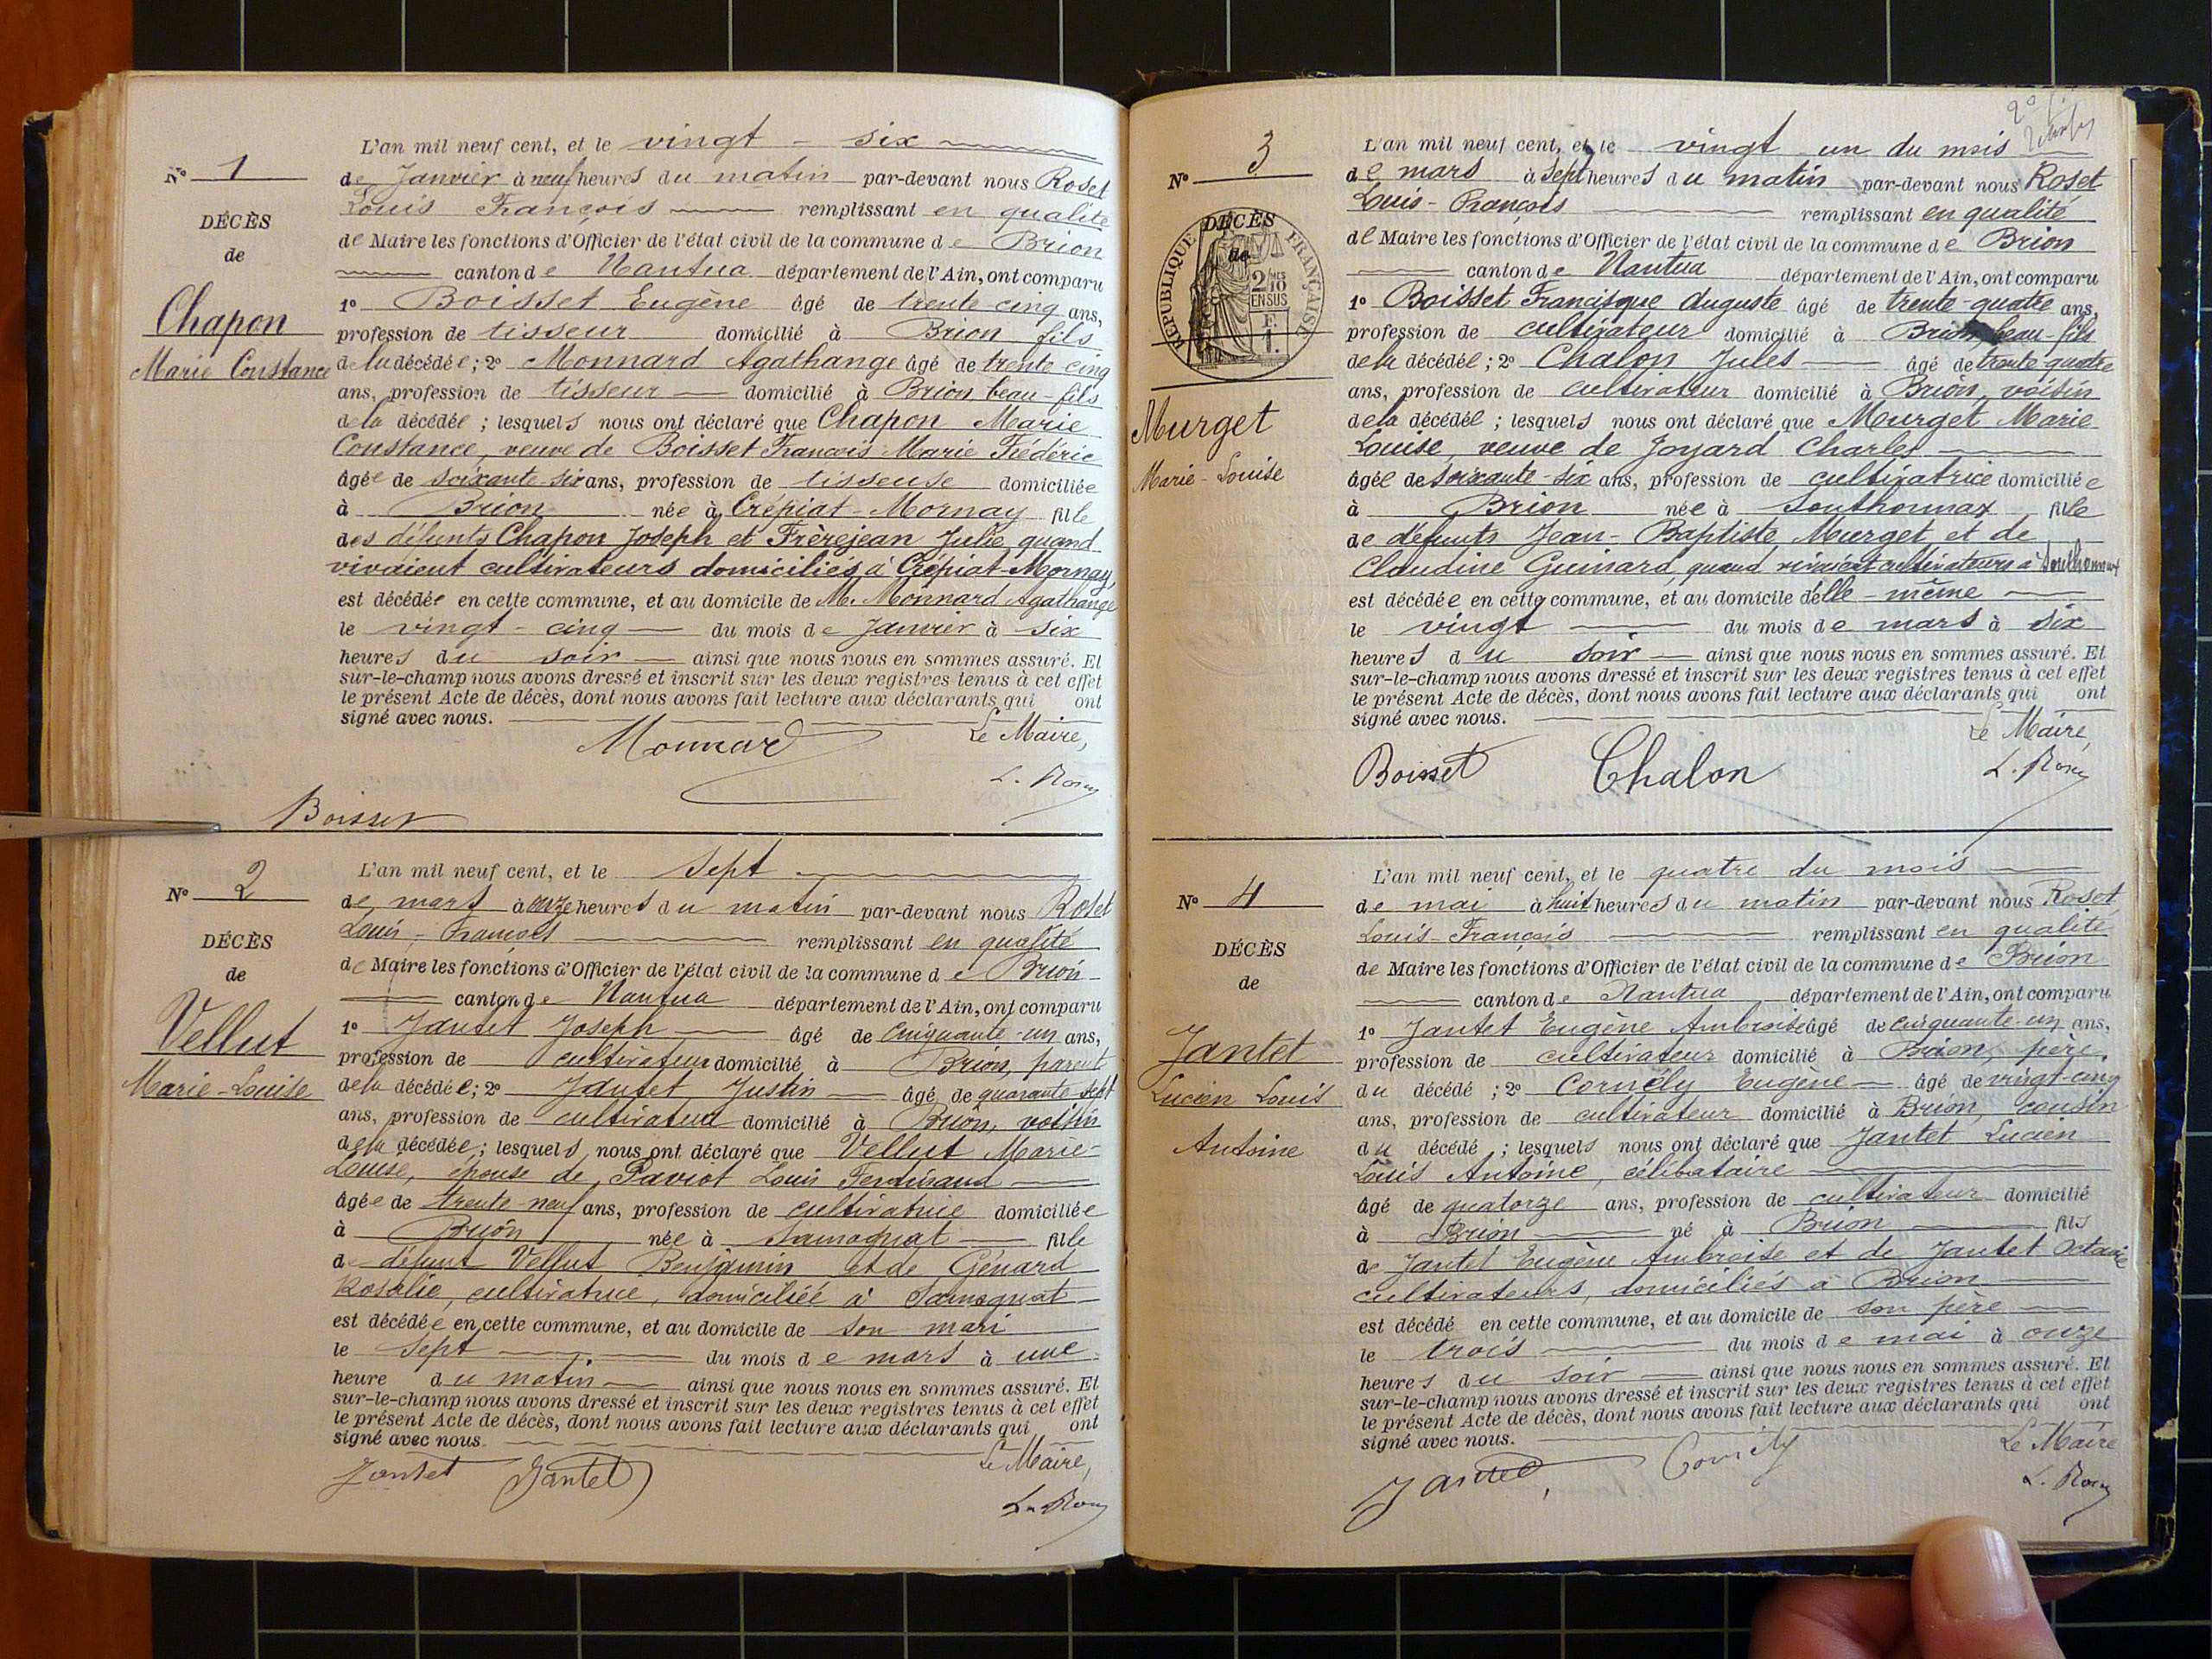 L'an mil neuf cent, et le vingt - six
Nº 1
de Janvier à neuf heures du matin par-devant nous Roset
Louis François remplissant en qualité
DÉCÈS
de Maire les fonctions d'Officier de l'état civil de la commune de Brion
de
canton de Nantua département de l'Ain, ont comparu
1º Boisset Eugène âgé de trente cinq ans,
Chapon
profession de tisseur domicilié à Brion fils
Marie Constance
de la décédée; 2º Monnard Agathange âgé de trente cinq
ans, profession de tisseur domicilié à Brion beau-fils
de la décédée ; lesquels nous ont déclaré que Chapon Marie
Constance, veuve de Boisset François Marie Frédéric
âgée de soixante-six ans, profession de tisseuse domiciliée
à Brion née à Crépiat-Mornay fille
des défunts Chapon Joseph et Frèrejean Julie, quand
vivaient cultivateurs domiciliés à Crépiat-Mornay,
est décédée en cette commune, et au domicile de M. Monnard Agathange
le vingt - cinq du mois de Janvier à six
heures du soir ainsi que nous nous en sommes assuré. Et
sur-le-champ nous avons dressé et inscrit sur les deux registres tenus à cet effet
le présent Acte de décès, dont nous avons fait lecture aux déclarants qui ont
signé avec nous.
Le Maire,
Monnard
Boisset
L'an mil neuf cent, et le sept
Nº 2
de mars à onze heures du matin par-devant nous Roset
Louis - François remplissant en qualité
DÉCÈS
de Maire les fonctions d'Officier de l'état civil de la commune de Brion
de
canton de Nantua département de l'Ain, ont comparu
1º Jantet Joseph âgé de cinquante-un ans,
Vellut
profession de cultivateur domicilié à Brion, parent
Marie-Louise
de la décédée; 2º Jantet Justin âgé de quarante sept
ans, profession de cultivateur domicilié à Brion, voisin
de la décédée ; lesquels nous ont déclaré que Vellut Marie-
Louise, épouse de Paviot Louis Ferdinand
âgée de trente-neuf ans, profession de cultivatrice domiciliée
à Brion née à Samognat fille
de défunt Vellut Benjamin et de Génard
Rosalie, cultivatrice, domiciliée à Samognat
est décédée en cette commune, et au domicile de son mari
le sept du mois de mars à une
heure du matin ainsi que nous nous en sommes assuré. Et
sur-le-champ nous avons dressé et inscrit sur les deux registres tenus à cet effet
le présent Acte de décès, dont nous avons fait lecture aux déclarants qui ont
signé avec nous.
Le Maire,
Jantet Jantet
L'an mil neuf cent, et le vingt un du mois
Nº 3
de mars à sept heures du matin par-devant nous Roset
Louis-François remplissant en qualité
DÉCÈS
de
RÉPUBLIQUE FRANÇAISE
2/10 EN SUS
de Maire les fonctions d'Officier de l'état civil de la commune de Brion
canton de Nantua département de l'Ain, ont comparu
1º Boisset Francisque Auguste âgé de trente-quatre ans,
profession de cultivateur domicilié à Brion beau-fils
de la décédée; 2º Chalon Jules âgé de trente quatre
ans, profession de cultivateur domicilié à Brion, voisin
Murget
de la décédée ; lesquels nous ont déclaré que Murget Marie
Marie-Louise
Louise, veuve de Joyard Charles
âgée de soixante-six ans, profession de cultivatrice domiciliée
à Brion née à Southonnax fille
de défunts Jean-Baptiste Murget et de
Claudine Guinard, quand vivaient cultivateurs à Southonnax
est décédée en cette commune, et au domicile d'elle-même
le vingt du mois de mars à six
heures du soir ainsi que nous nous en sommes assuré. Et
sur-le-champ nous avons dressé et inscrit sur les deux registres tenus à cet effet
le présent Acte de décès, dont nous avons fait lecture aux déclarants qui ont
signé avec nous.
Le Maire,
Boisset Chalon
L'an mil neuf cent, et le quatre du mois
Nº 4
de mai à huit heures du matin par-devant nous Roset
Louis-François remplissant en qualité
DÉCÈS
de Maire les fonctions d'Officier de l'état civil de la commune de Brion
de
canton de Nantua département de l'Ain, ont comparu
1º Jantet Eugène Ambroise âgé de cinquante-un ans,
Jantet
profession de cultivateur domicilié à Brion, père,
Lucien Louis
du décédé ; 2º Cornély Eugène âgé de vingt-cinq
ans, profession de cultivateur domicilié à Brion, cousin
Antoine
du décédé ; lesquels nous ont déclaré que Jantet Lucien
Louis Antoine, célibataire
âgé de quatorze ans, profession de cultivateur domicilié
à Brion né à Brion fils
de Jantet Eugène Ambroise et de Jantet Octavie
cultivateurs, domiciliés à Brion
est décédé en cette commune, et au domicile de son père
le trois du mois de mai à onze
heures du soir ainsi que nous nous en sommes assuré. Et
sur-le-champ nous avons dressé et inscrit sur les deux registres tenus à cet effet
le présent Acte de décès, dont nous avons fait lecture aux déclarants qui ont
signé avec nous.
Le Maire
Jantet